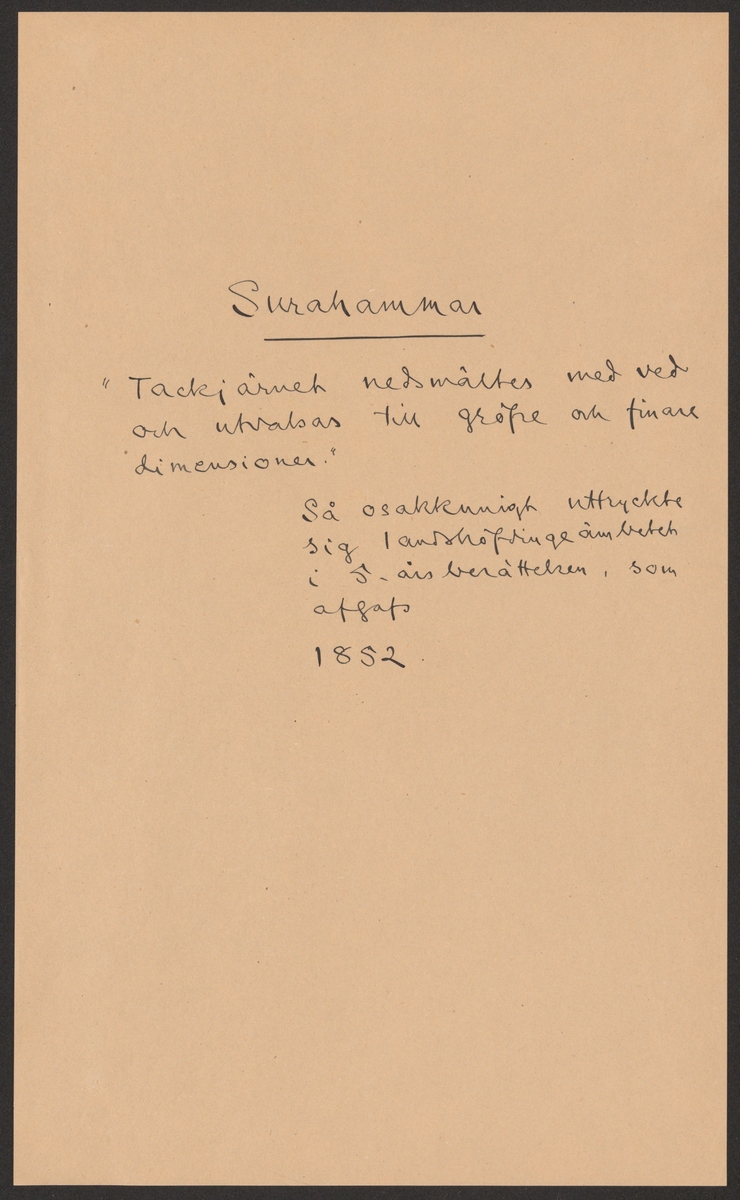 Surahammar
"Tackjärnet nedsmältes med ved
och utvalsas till gröfre och finare
dimensioner."
Så osakkunnigt uttryckte
sig landshöfdingeämbetet
i 5-årsberättelsen, som
afgafs
1852.